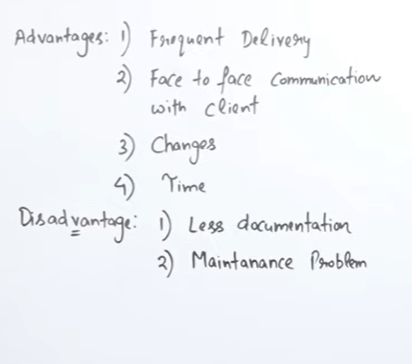 Advantages: 1) Frequent Delivery
2) Face to face Communication
with client
3) Changes
4) Time
Disadvantage: 1) Less documentation
2) Maintanance Problem